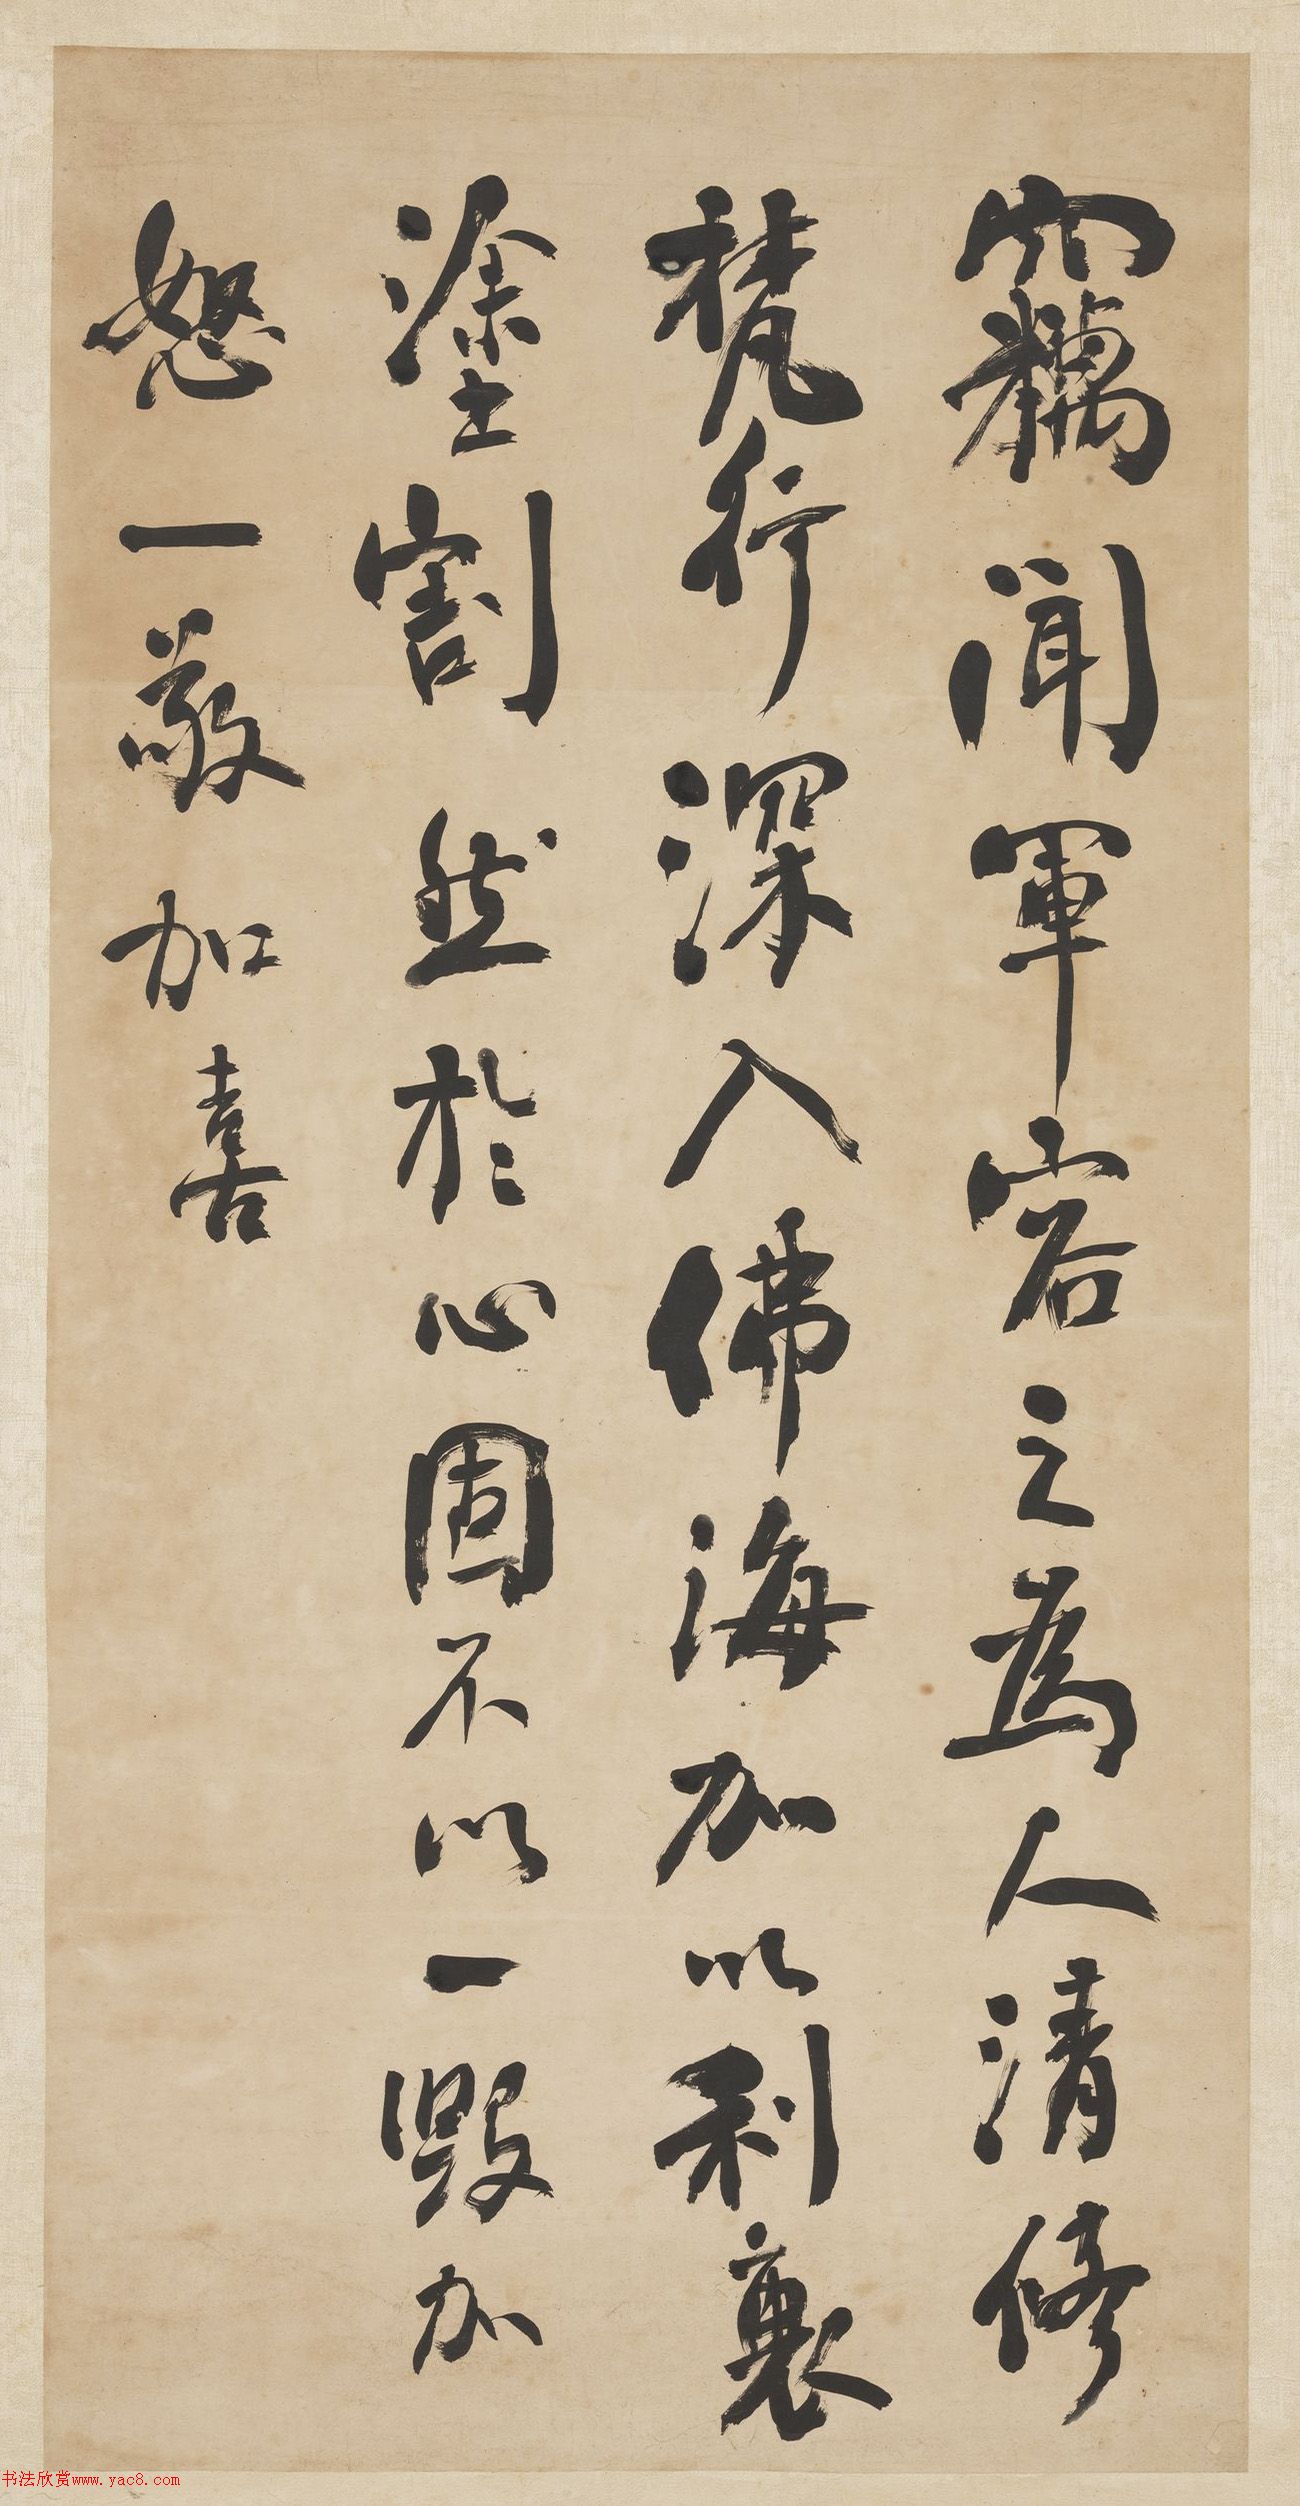 竊聞軍容之為人清修
梵行深入佛海加以利衰
塗割然於心固不以一毀加
怒一敬加喜
书法欣赏www.yac8.com